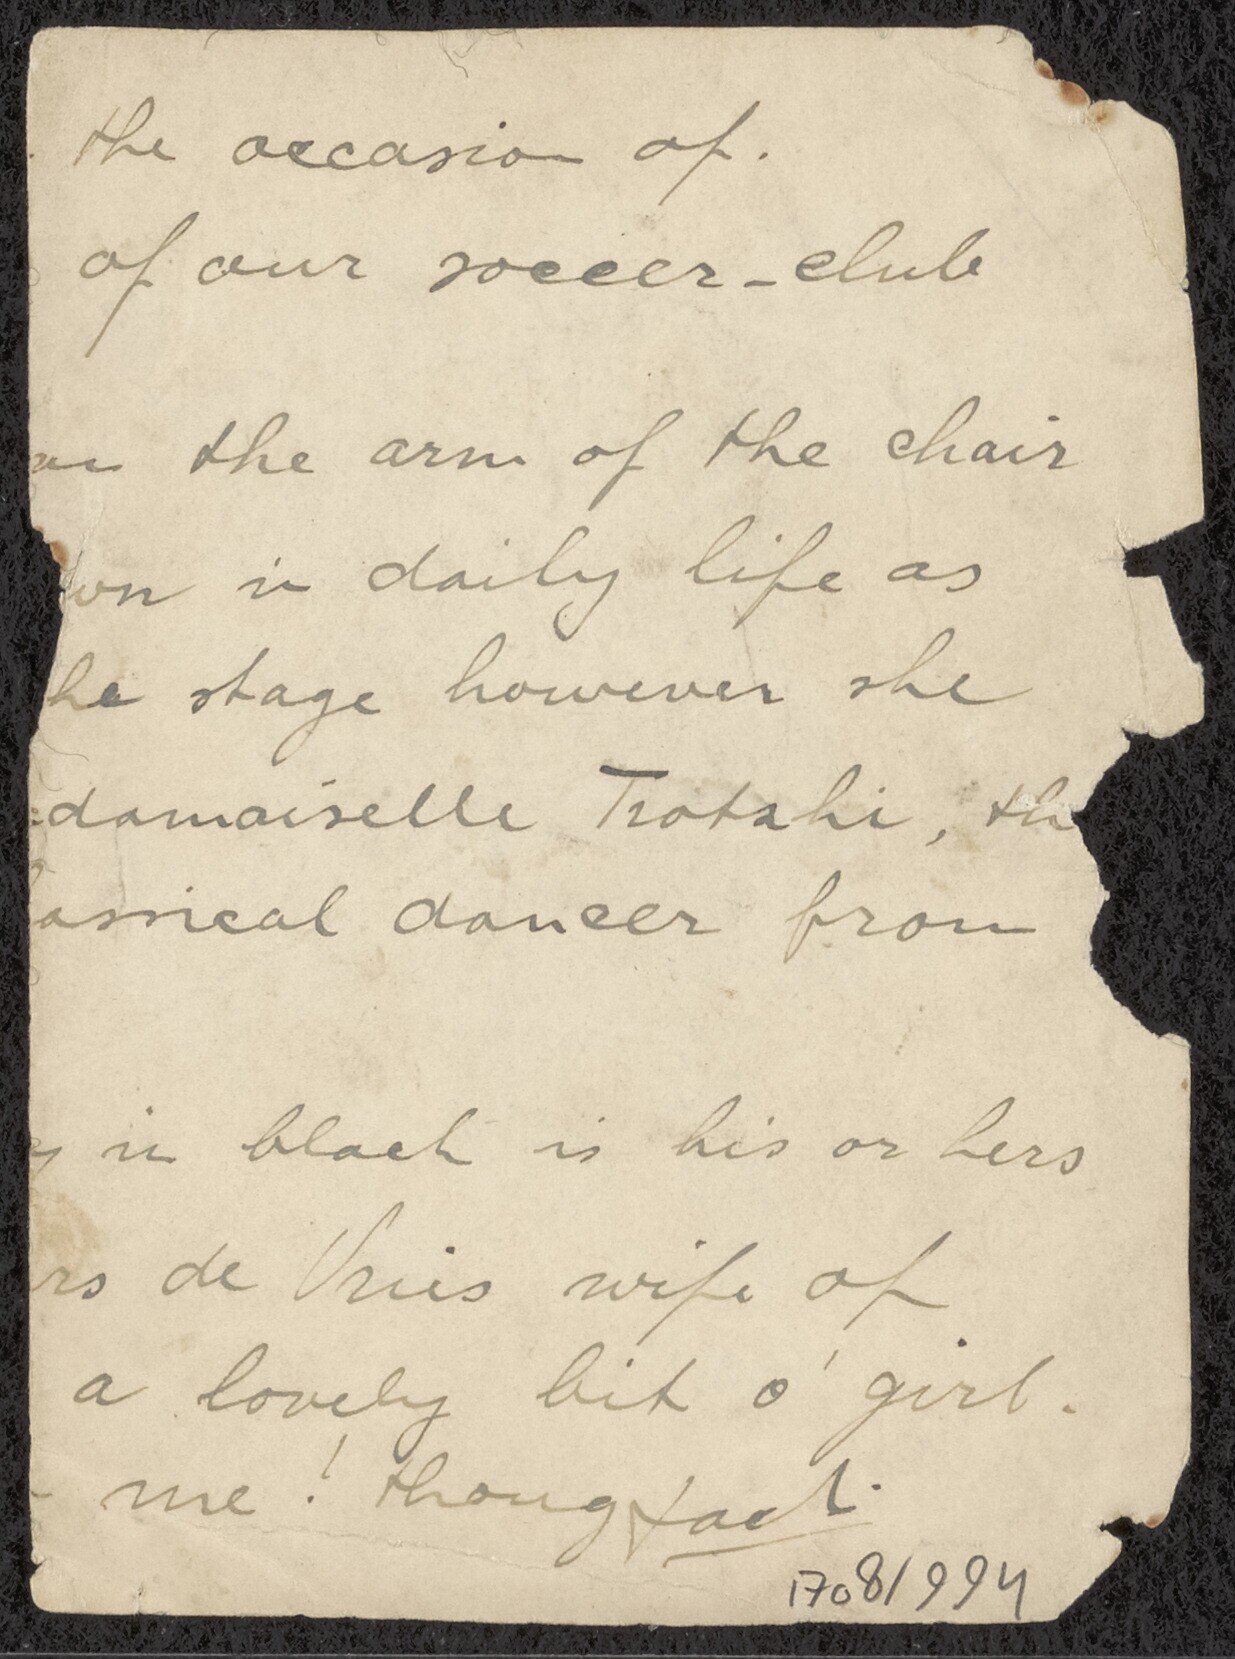 the occasion of.
of our soccer-club
the arm of the chair
wn in daily life as
he stage however she
damaiselle Trotski, th
lassical dancer from
y in black is his or hers
rs de Vries wife of
a lovely bit o' girl.
me! thoug
1708/994